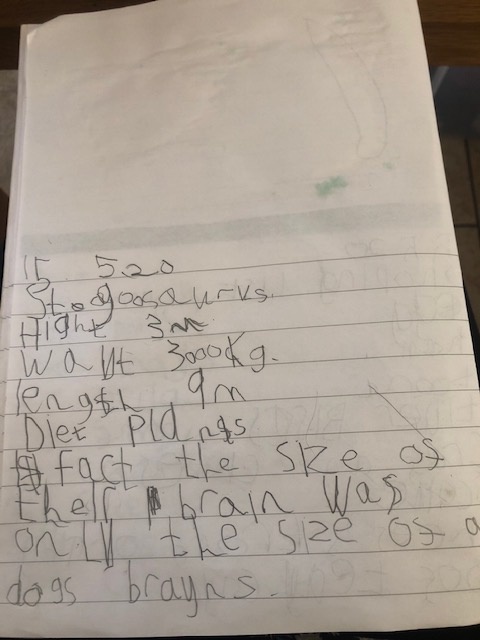 15 5.20
Stegosaurus.
Hight 3m
Wayt 3000Kg.
length 9m
Diet Planṭs
fact the size of
their brain was
only the size of a
dogs brayns.